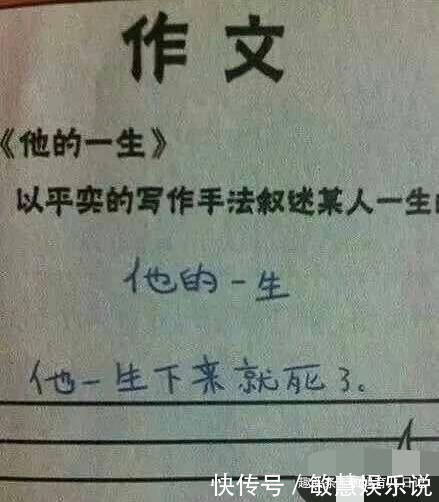 作文
《他的一生》
以平实的写作手法叙述某人一生
他的一生
他一生下来就死了。
快传号/敏慧娱乐说